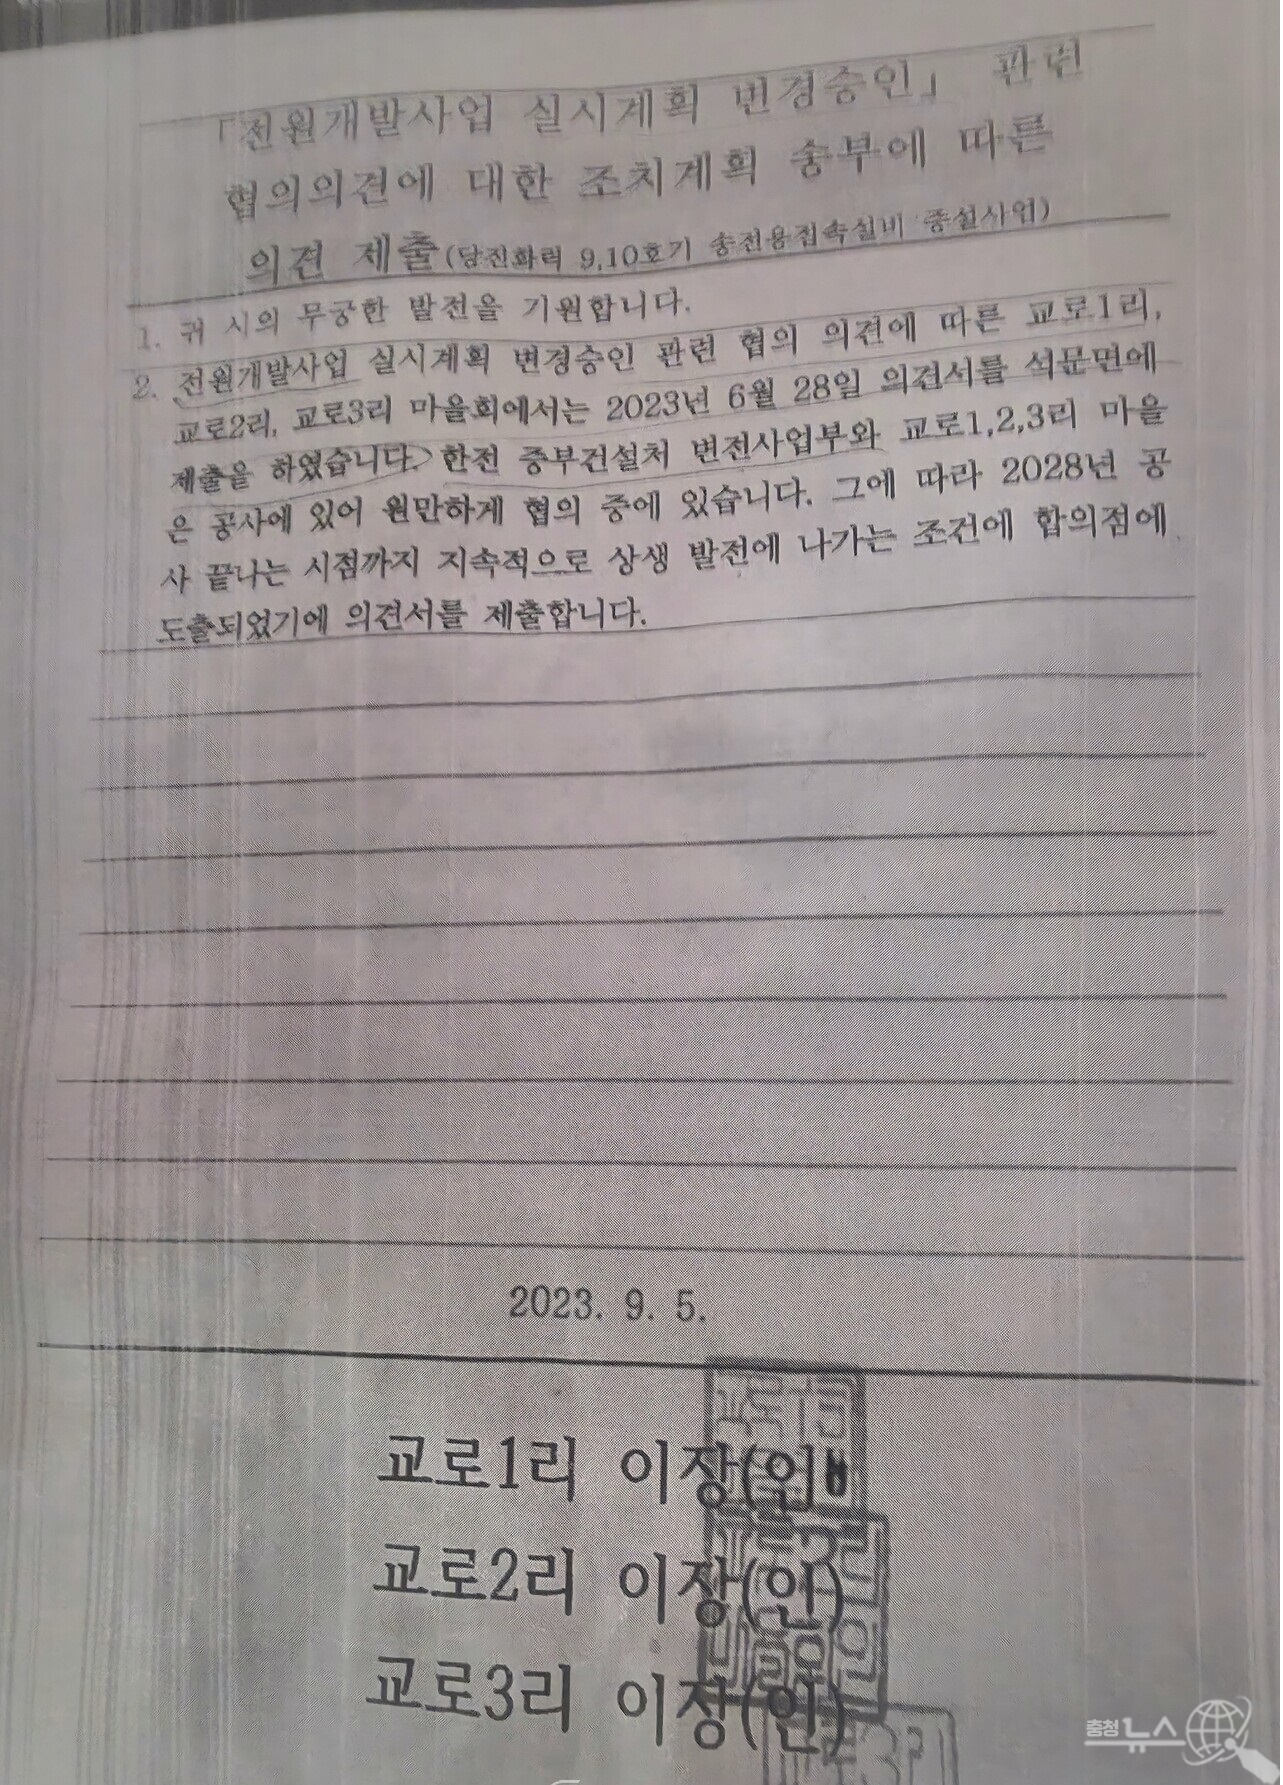 「전원개발사업 실시계획 변경승인」 관련
협의의견에 대한 조치계획 송부에 따른
의견 제출(당진화력 9,10호기 송전용접속설비 증설사업)
1. 귀 시의 무궁한 발전을 기원합니다.
2. 전원개발사업 실시계획 변경승인 관련 협의 의견에 따른 교로1리,
교로2리, 교로3리 마을회에서는 2023년 6월 28일 의견서를 석문면에
제출을 하였습니다. 한전 중부건설처 변전사업부와 교로1,2,3리 마을
은 공사에 있어 원만하게 협의 중에 있습니다. 그에 따라 2028년 공
사 끝나는 시점까지 지속적으로 상생 발전에 나가는 조건에 합의점에
도출되었기에 의견서를 제출합니다.
2023. 9. 5.
교로1리 이장(인)
교로2리 이장(인)
교로3리 이장(인)
충청뉴스